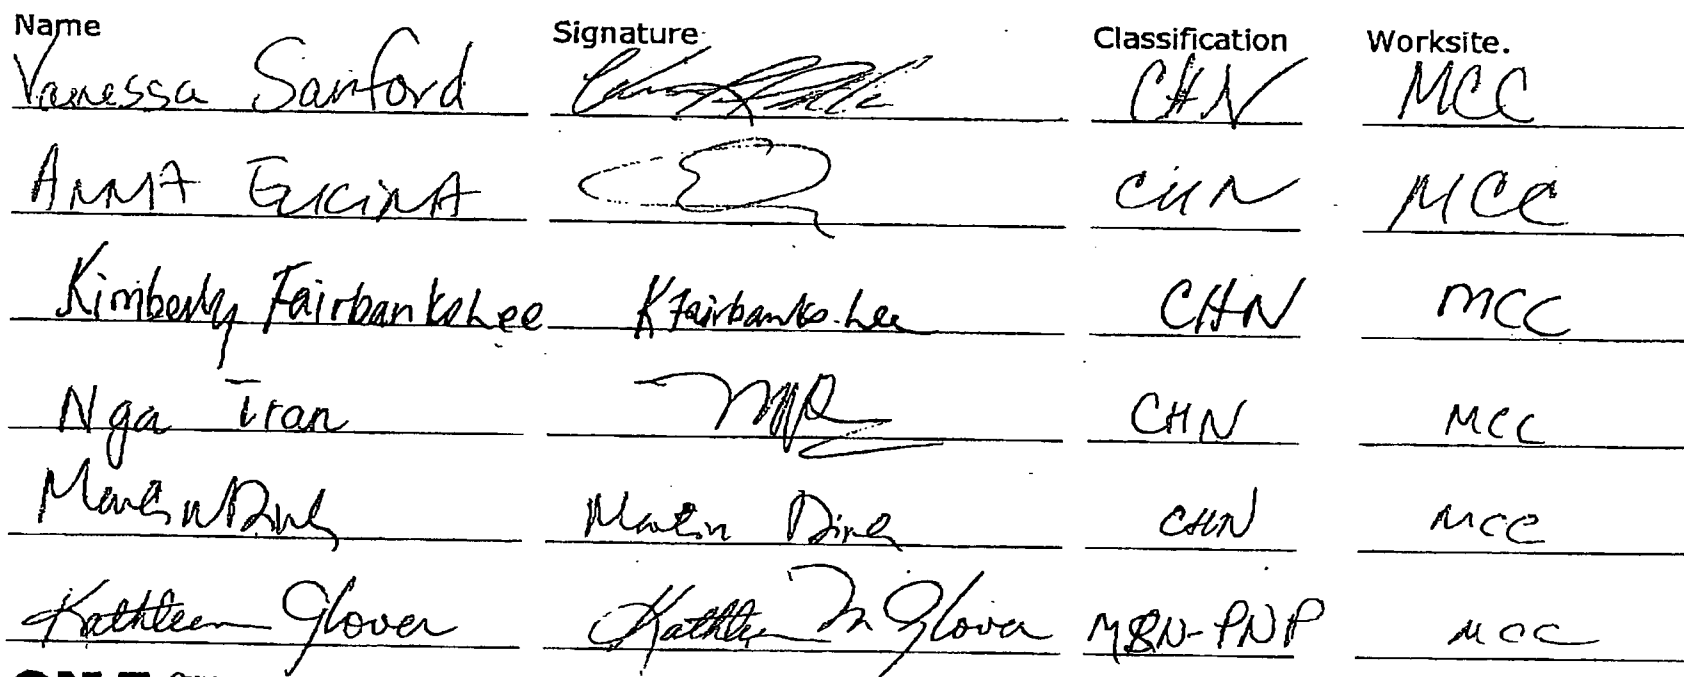 Name Signature Classification Worksite.
Vanessa Sanford CHN MCC
ANNA CHN MCC
Kimberly FairbanksLee KFairbanks-Lee CHN MCC
Nga Tran CHN MCC
Martin CHN MCC
Kathleen Glover Kathleen M Glover MSN-PNP MCC